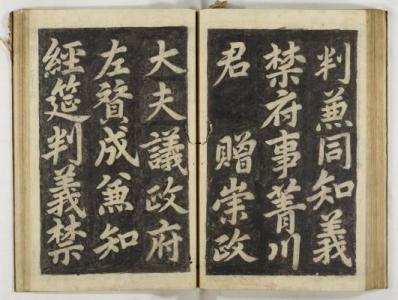 判兼同知義
禁府事菁川
君 贈崇政
大夫議政府
左贊成兼知
經筵判義禁